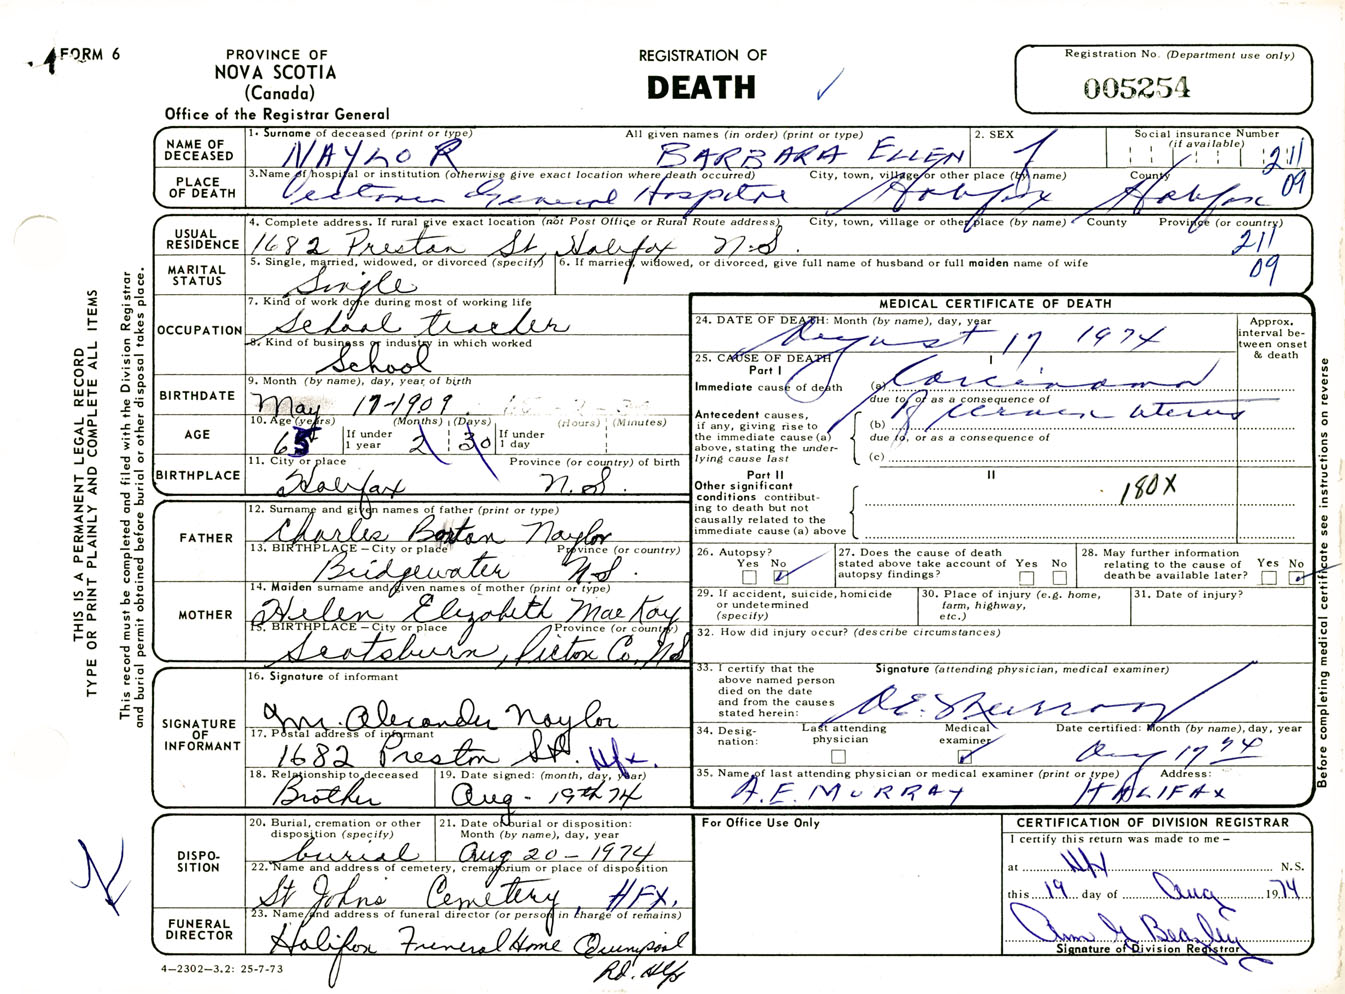 FORM 6
PROVINCE OF
NOVA SCOTIA
(Canada)
Office of the Registrar General
REGISTRATION OF
DEATH
Registration No. (Department use only)
005254
THIS IS A PERMANENT LEGAL RECORD
TYPE OR PRINT PLAINLY AND COMPLETE ALL ITEMS
This record must be completed and filed with the Division Registrar
and burial permit obtained before burial or other disposal takes place.
NAME OF DECEASED
1. Surname of deceased (print or type) All given names (in order) (print or type)
NAYLOR BARBARA ELLEN
2. SEX
F
Social insurance Number
(if available)
211
09
PLACE OF DEATH
3. Name of hospital or institution (otherwise give exact location where death occurred) City, town, village or other place (by name) County
Victoria General Hospital Halifax Halifax
USUAL RESIDENCE
4. Complete address. If rural give exact location (not Post Office or Rural Route address) City, town, village or other place (by name) County Province (or country)
1682 Preston St. Halifax N.S.
211
09
MARITAL STATUS
5. Single, married, widowed, or divorced (specify)
Single
6. If married, widowed, or divorced, give full name of husband or full maiden name of wife
OCCUPATION
7. Kind of work done during most of working life
School teacher
8. Kind of business or industry in which worked
School
BIRTHDATE
9. Month (by name), day, year of birth
May 17-1909
AGE
10. Age (years) (Months) (Days) (Hours) (Minutes)
65 If under 1 year 2 30 If under 1 day
BIRTHPLACE
11. City or place Province (or country) of birth
Halifax N.S.
FATHER
12. Surname and given names of father (print or type)
Charles Naylor
13. BIRTHPLACE – City or place Province (or country)
Bridgewater N.S.
MOTHER
14. Maiden surname and given names of mother (print or type)
Helen Elizabeth MacKay
15. BIRTHPLACE – City or place Province (or country)
Scotsburn, Pictou Co. N.S.
SIGNATURE OF INFORMANT
16. Signature of informant
Mr. Alexander Naylor
17. Postal address of informant
1682 Preston St. Hfx.
18. Relationship to deceased
Brother
19. Date signed: (month, day, year)
Aug - 19th 74
DISPOSITION
20. Burial, cremation or other disposition (specify)
burial
21. Date of burial or disposition: Month (by name), day, year
Aug 20 - 1974
22. Name and address of cemetery, crematorium or place of disposition
St Johns Cemetery, HFX.
FUNERAL DIRECTOR
23. Name and address of funeral director (or person in charge of remains)
Halifax Funeral Home Quinpool
Rd. Hfx
4–2302–3.2: 25-7-73
MEDICAL CERTIFICATE OF DEATH
24. DATE OF DEATH: Month (by name), day, year
August 17 1974
Approx. interval between onset & death
25. CAUSE OF DEATH
Part I
I
Immediate cause of death (a) Carcinoma
due to, or as a consequence of
Antecedent causes, if any, giving rise to the immediate cause (a) above, stating the underlying cause last
(b) of cervix uterus
due to, or as a consequence of
(c)
Part II
II
Other significant conditions contributing to death but not causally related to the immediate cause (a) above
180X
26. Autopsy?
Yes No
27. Does the cause of death stated above take account of autopsy findings?
Yes No
28. May further information relating to the cause of death be available later?
Yes No
29. If accident, suicide, homicide or undetermined (specify)
30. Place of injury (e.g. home, farm, highway, etc.)
31. Date of injury?
32. How did injury occur? (describe circumstances)
33. I certify that the above named person died on the date and from the causes stated herein:
Signature (attending physician, medical examiner)
A.E. Murray
34. Designation:
Last attending physician
Medical examiner
Date certified: Month (by name), day, year
Aug 17 74
35. Name of last attending physician or medical examiner (print or type) Address:
A.E. MURRAY HALIFAX
For Office Use Only
CERTIFICATION OF DIVISION REGISTRAR
I certify this return was made to me –
at Hfx N.S.
this 19 day of Aug 1974
Ann G Beazley
Signature of Division Registrar
Before completing medical certificate see instructions on reverse